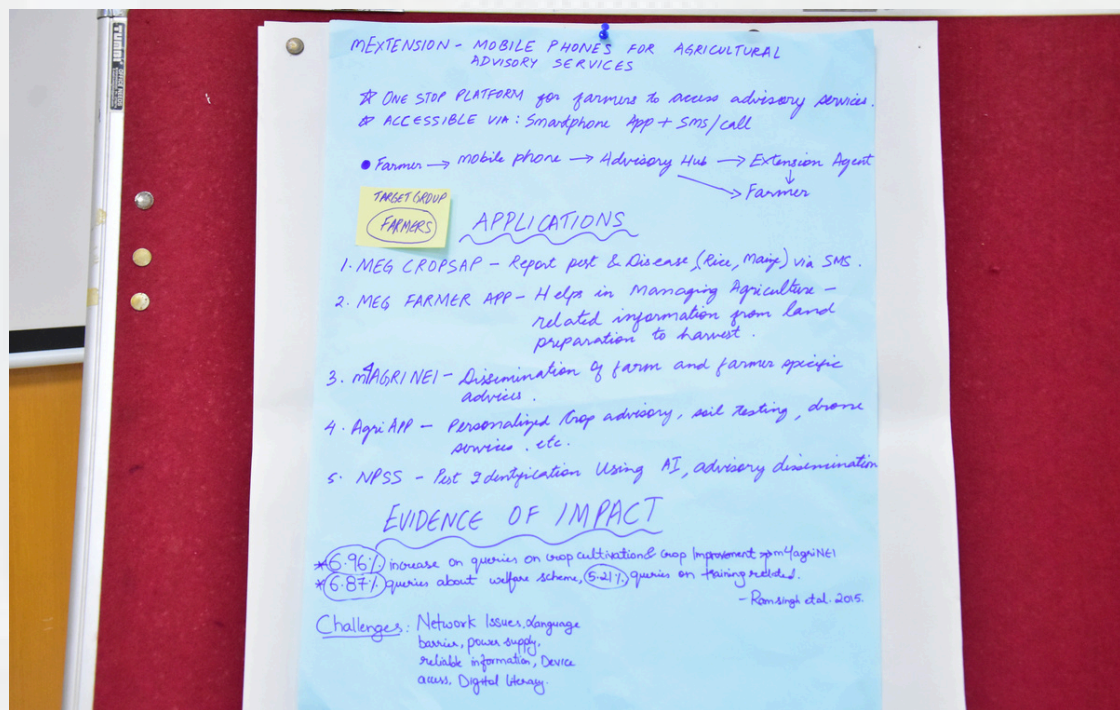 mEXTENSION - MOBILE PHONES FOR AGRICULTURAL
ADVISORY SERVICES
☆ ONE STOP PLATFORM for farmers to access advisory services.
☆ ACCESSIBLE VIA: Smartphone App + Sms/call
● Farmer → mobile phone → Advisory Hub → Extension Agent
↓
→ Farmer
TARGET GROUP
FARMERS
APPLICATIONS
1. MEG CROPSAP - Report pest & Disease (Rice, Maize) via SMS.
2. MEG FARMER APP - Helps in Managing Agriculture -
related information from land
preparation to harvest.
3. m4AGRI NEI - Dissemination of farm and farmer specific
advices.
4. Agri APP - Personalized Crop advisory, soil testing, drone
services. etc.
5. NPSS - Pest Identification Using AI, advisory dissemination
EVIDENCE OF IMPACT
* 6.96% increase on queries on crop cultivation & crop Improvement → m4agriNEI
* 6.87% queries about welfare scheme, 5.21% queries on training related.
- Ramsingh et al. 2015.
Challenges: Network Issues, Language
barrier, power supply,
reliable information, Device
acess, Digital literacy.